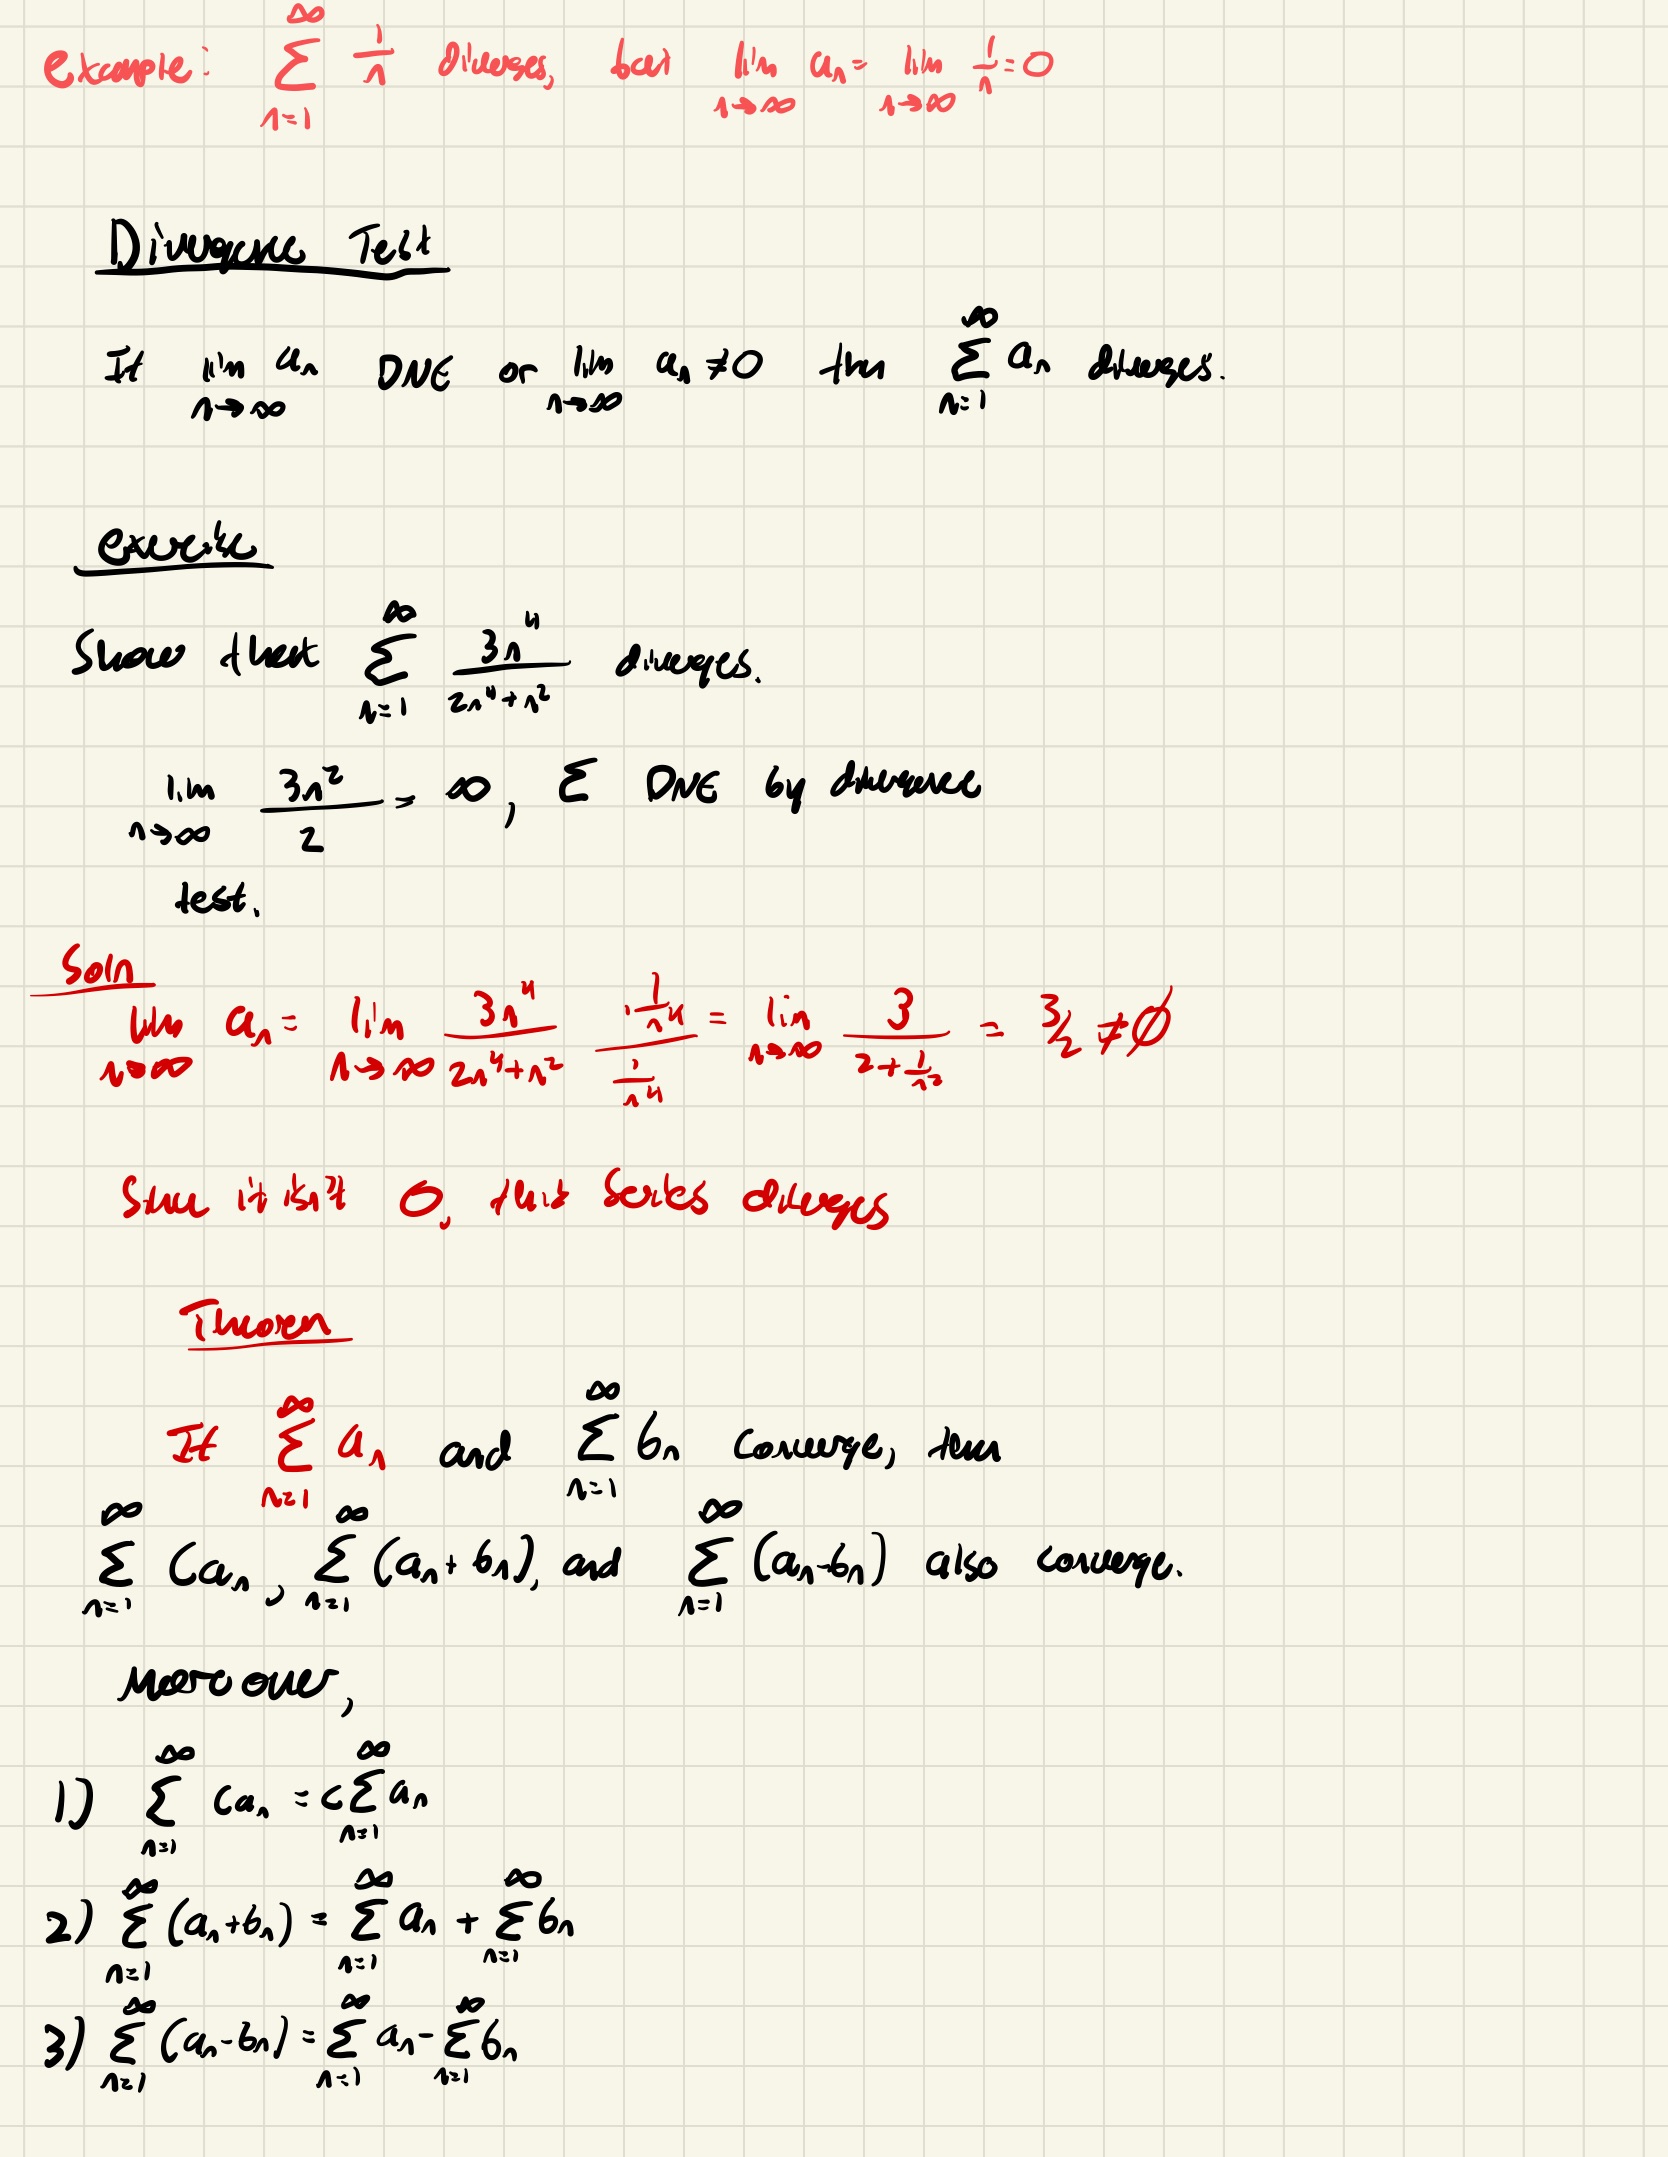 example: ∞∑n=1 1/n diverges, but lim n→∞ an = lim n→∞ 1/n = 0
Divergence Test
If lim n→∞ an DNE or lim n→∞ an ≠ 0 then ∞∑n=1 an diverges.
exercise
Show that ∞∑n=1 3n^4/(2n^4+n^2) diverges.
lim n→∞ 3n^2/2 = ∞, Σ DNE by divergence
test.
Soln
lim n→∞ an = lim n→∞ 3n^4/(2n^4+n^2) (1/n^4)/(1/n^4) = lim n→∞ 3/(2+1/n^2) = 3/2 ≠ 0
Since it isn't 0, this series diverges
Theorem
If ∞∑n=1 an and ∞∑n=1 bn converge, then
∞∑n=1 Can, ∞∑n=1 (an+bn), and ∞∑n=1 (an-bn) also converge.
Moreover,
1) ∞∑n=1 Can = C ∞∑n=1 an
2) ∞∑n=1 (an+bn) = ∞∑n=1 an + ∞∑n=1 bn
3) ∞∑n=1 (an-bn) = ∞∑n=1 an - ∞∑n=1 bn